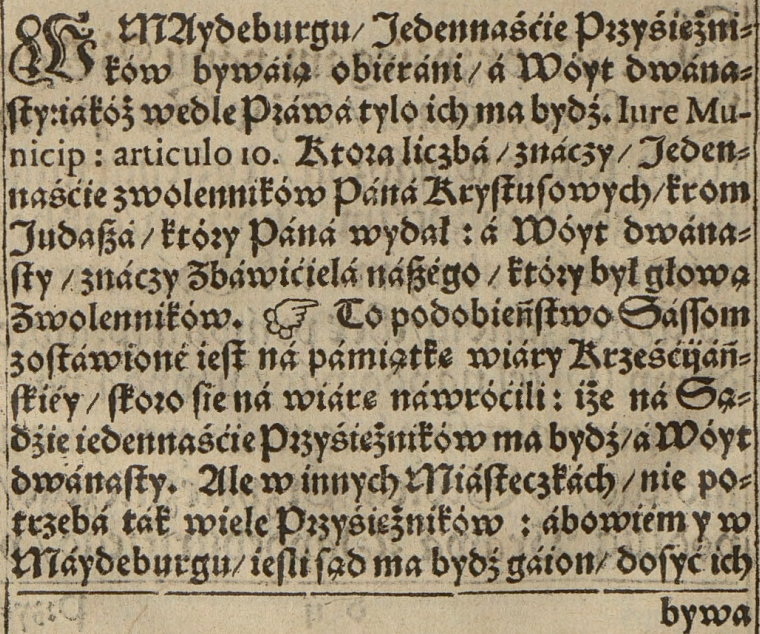 W MAydeburgu/ Jedennaśćie Przyśiężni⸗
ków bywáią obieráni/ á Wóyt dwána⸗
sty:iákóż wedle Práwá tylo ich ma bydź. Iure Mu-
nicip : articulo 10. Ktora liczbá / znáczy / Jeden⸗
naśćie zwolenników Páná Krystusowych/krom
Judaszá / który Páná wydał : á Wóyt dwána⸗
sty / znáczy Zbáwićielá nászégo / który był głową
Zwolenników. ☞ To podobieństwo Sássom
zostáwioné iest ná pámiątkę wiáry Krześćijáń⸗
skiéy / skoro sie ná wiárę náwróćili : iże ná Są⸗
dźie iedennaśćie Przyśiężników ma bydź/á Wóyt
dwánasty. Ale w innych Miásteczkách / nie po⸗
trzebá ták wiele Przyśiężników : ábowiém y w
Máydeburgu/ iesli sąd ma bydź gáion/ dosyć ich
bywa